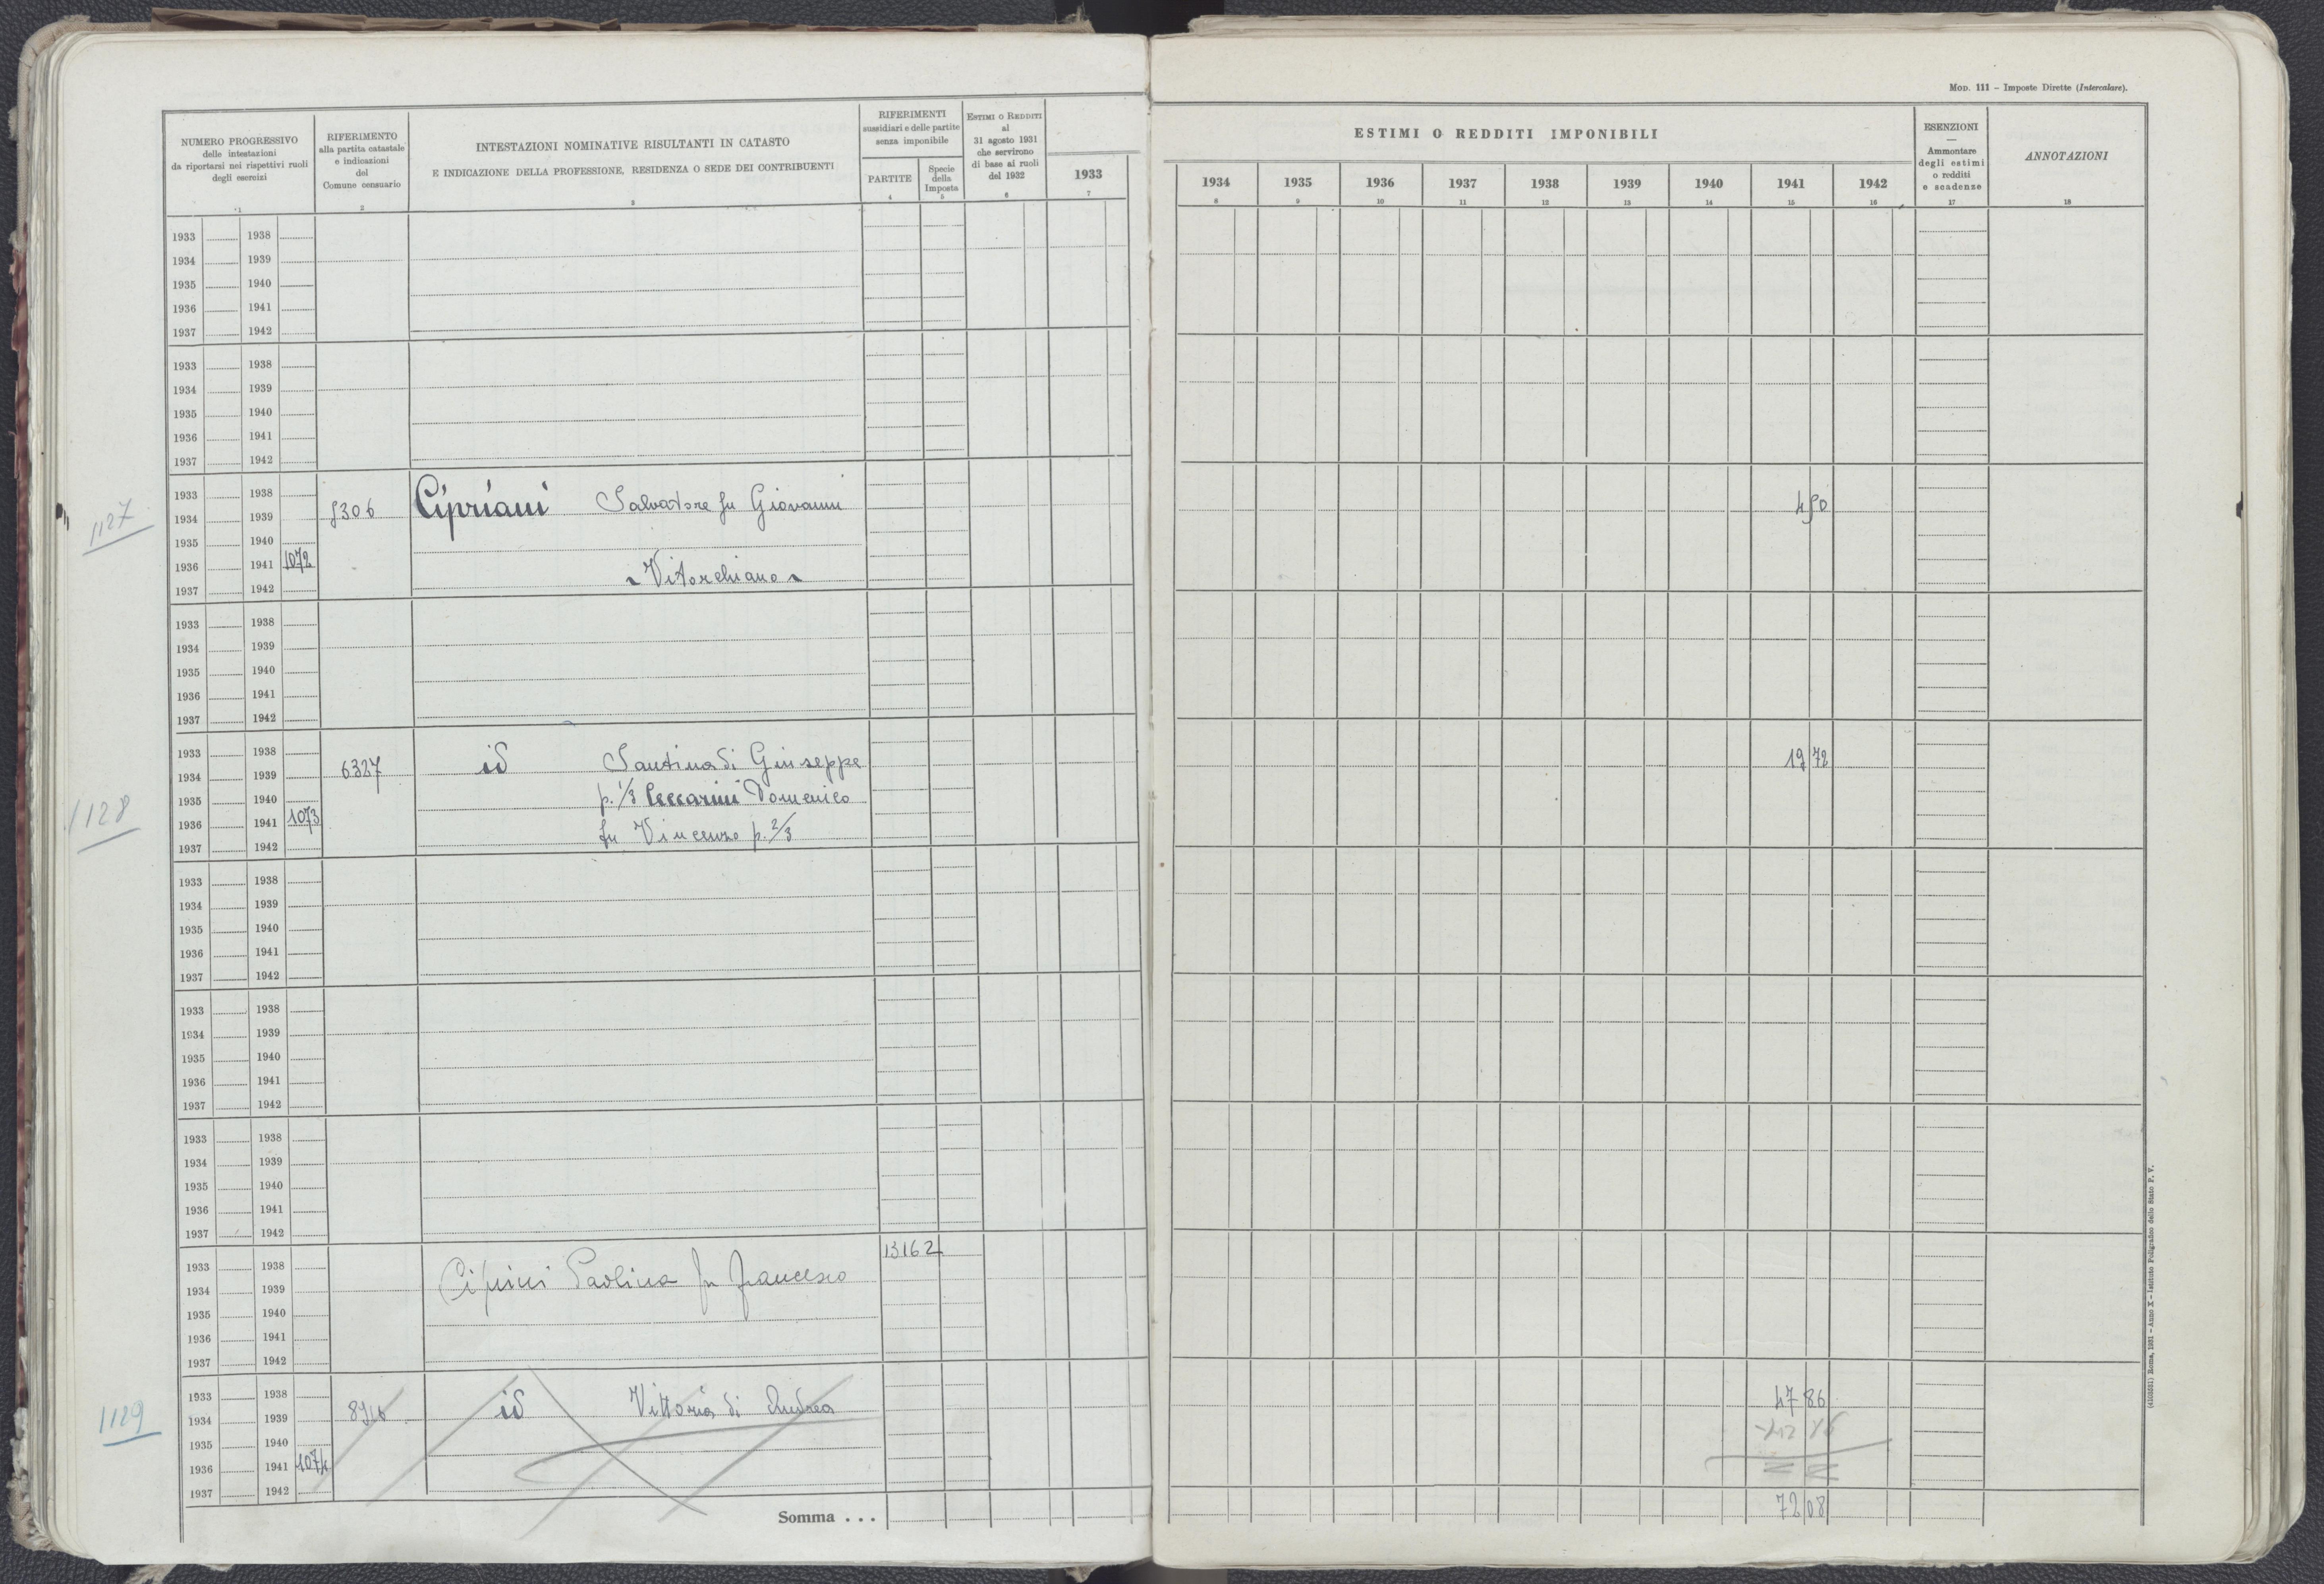 MOD. 111 – Imposte Dirette (Intercalare).
NUMERO PROGRESSIVO
delle intestazioni
da riportarsi nei rispettivi ruoli
degli esercizi
1
RIFERIMENTO
alla partita catastale
e indicazioni
del
Comune censuario
2
INTESTAZIONI NOMINATIVE RISULTANTI IN CATASTO
E INDICAZIONE DELLA PROFESSIONE, RESIDENZA O SEDE DEI CONTRIBUENTI
3
RIFERIMENTI
sussidiari e delle partite
senza imponibile
PARTITE
4
Specie
della
Imposta
5
ESTIMI O REDDITI
al
31 agosto 1931
che servirono
di base ai ruoli
del 1932
6
1933
7
ESTIMI O REDDITI IMPONIBILI
1934 1935 1936 1937 1938 1939 1940 1941 1942
8 9 10 11 12 13 14 15 16
ESENZIONI
—
Ammontare
degli estimi
o redditi
e scadenze
17
ANNOTAZIONI
18
1933 1938
1934 1939
1935 1940
1936 1941
1937 1942
1933 1938
1934 1939
1935 1940
1936 1941
1937 1942
1127
1933 1938
1934 1939 Cipriani Salvatore fu Giovanni
1935 1940
1936 1941 1072 Vitorchiano
1937 1942
1933 1938
1934 1939
1935 1940
1936 1941
1937 1942
1128
1933 1938
1934 1939 6327 id Santina di Giuseppe 19 72
1935 1940 p. 1/3 Ceccarini Domenico
1936 1941 1073 fu Vincenzo p. 2/3
1937 1942
1933 1938
1934 1939
1935 1940
1936 1941
1937 1942
1933 1938
1934 1939
1935 1940
1936 1941
1937 1942
1933 1938
1934 1939
1935 1940
1936 1941
1937 1942
13162
1933 1938
1934 1939 Paolina fu Francesco
1935 1940
1936 1941
1937 1942
1129
1933 1938 47 86
1934 1939 id Vittoria di Andrea
1935 1940
1936 1941 1074
1937 1942
Somma . . . 72 08
(4103051) Roma, 1931 – Anno X – Istituto Poligrafico dello Stato P. V.